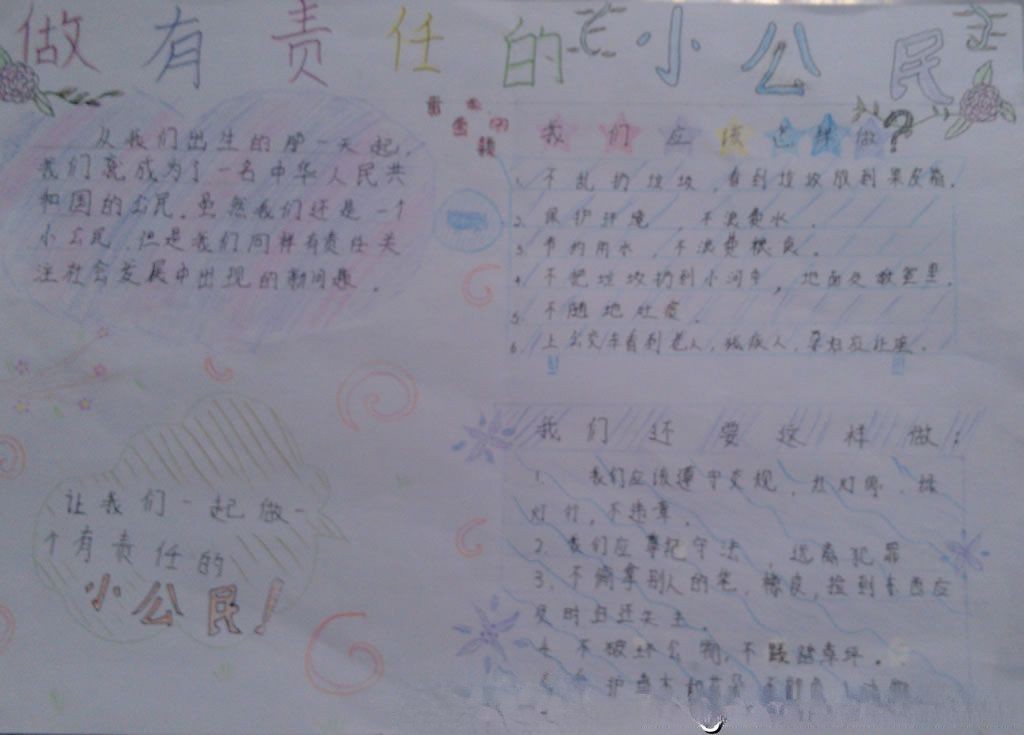 做有责任的小公民
从我们出生的那一天起，
我们就成为了一名中华人民共
和国的公民。虽然我们还是一个
小公民，但是我们同样有责任关
注社会发展中出现的新问题。
我们应该怎样做？
1. 不乱扔垃圾，看到垃圾放到果皮箱。
2. 保护环境，不浪费水。
3. 节约用水，不浪费粮食。
4. 不把垃圾扔到小河中，地面及教室里。
5. 不随地吐痰。
6. 上公交车看到老人，残疾人，孕妇应让座。
我们还要这样做：
1. 我们应该遵守交规，红灯停、绿
灯行，不违章。
2. 我们应尊纪守法，远离犯罪
3. 不偷拿别人的笔，橡皮，捡到东西应
及时归还失主。
4. 不破坏公物，不践踏草坪。
让我们一起做一
个有责任的
小公民！